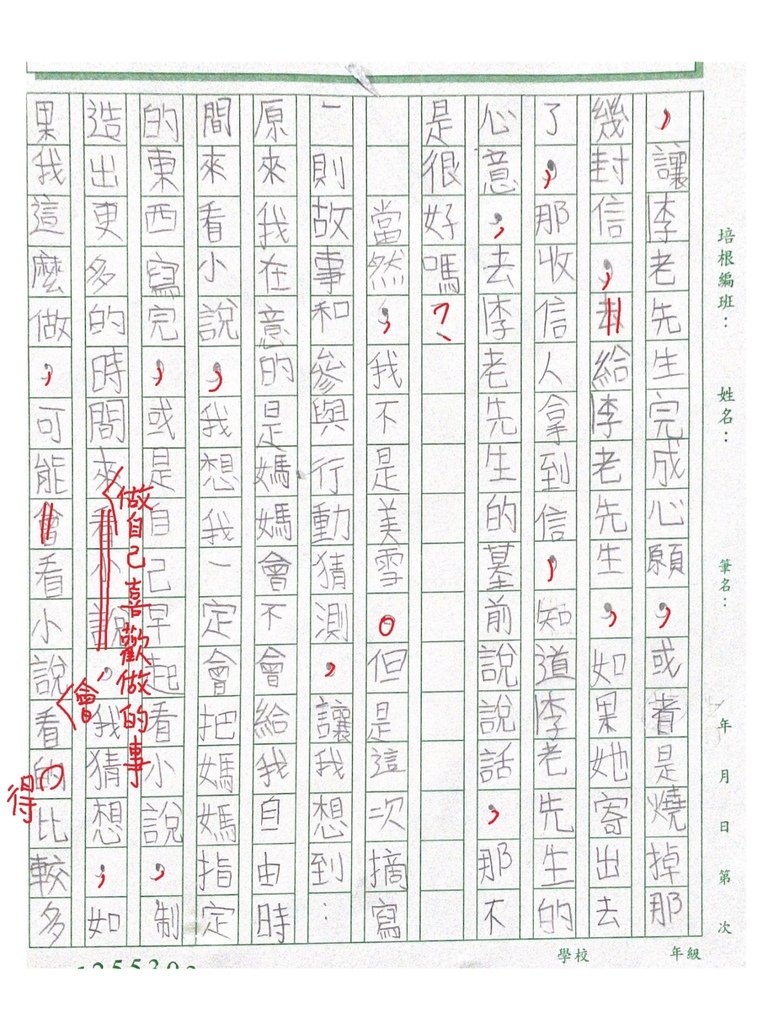 ，讓李老先生完成心願，或者是燒掉那
幾封信，給李老先生，如果她寄出去
了，那收信人拿到信，知道李老先生的
心意，去李老先生的墓前說說話，那不
是很好嗎？
當然，我不是美雪。但是這次摘寫
一則故事和參與行動猜測，讓我想到…
原來我在意的是媽媽會不會給我自由時
間來看小說，我想我一定會把媽媽指定
的東西寫完，或是自己早起看小說，制
造出更多的時間來看小說，我猜想，如
做自己喜歡做的事
果我這麼做，可能會看小說看的比較多
會
得
培根編班：
姓名：
筆名：
年 月 日 第 次
學校 年級